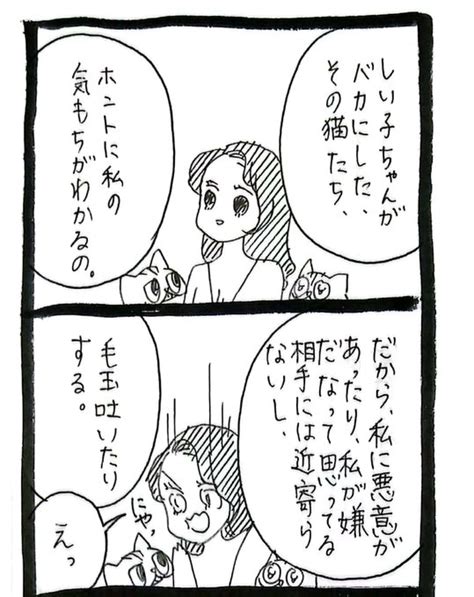 しい子ちゃんが
バカにした、
その猫たち、
ホントに私の
気もちがわかるの。
だから、私に悪意が
あったり、私が嫌
だなって思ってる
相手には近寄ら
ないし、
毛玉吐いたり
する。
にゃ。
えっ